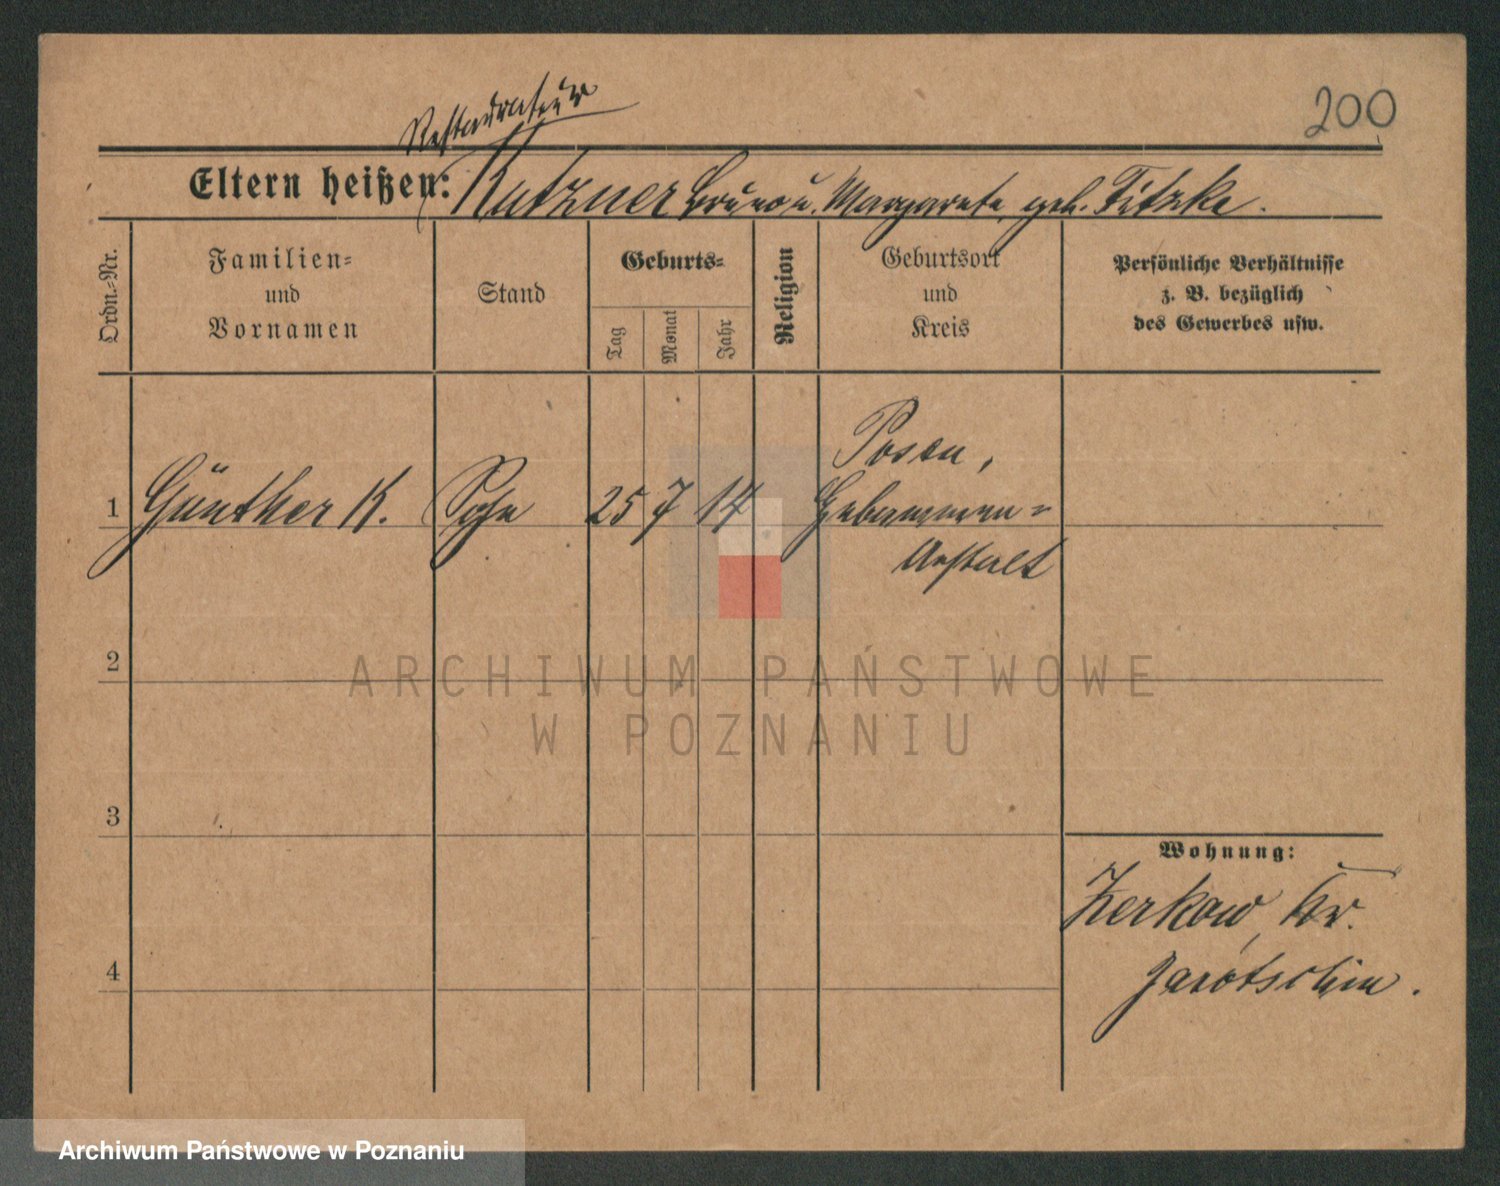 200
Restaurateur
Eltern heißen: Kutzner Bruno u. Margarete, geb. Titzke.
Ordn.=Nr.
Familien=
und
Vornamen
Stand
Geburts=
Tag
Monat
Jahr
Religion
Geburtsort
und
Kreis
Persönliche Verhältnisse
z. B. bezüglich
des Gewerbes usw.
Posen,
1 Günther K. Sohn 25 7 14 Hebammen=
Anstalt
2
3
Wohnung:
Zerkow, Kr.
4
Jarotschin.
ARCHIWUM PAŃSTWOWE
W POZNANIU
Archiwum Państwowe w Poznaniu